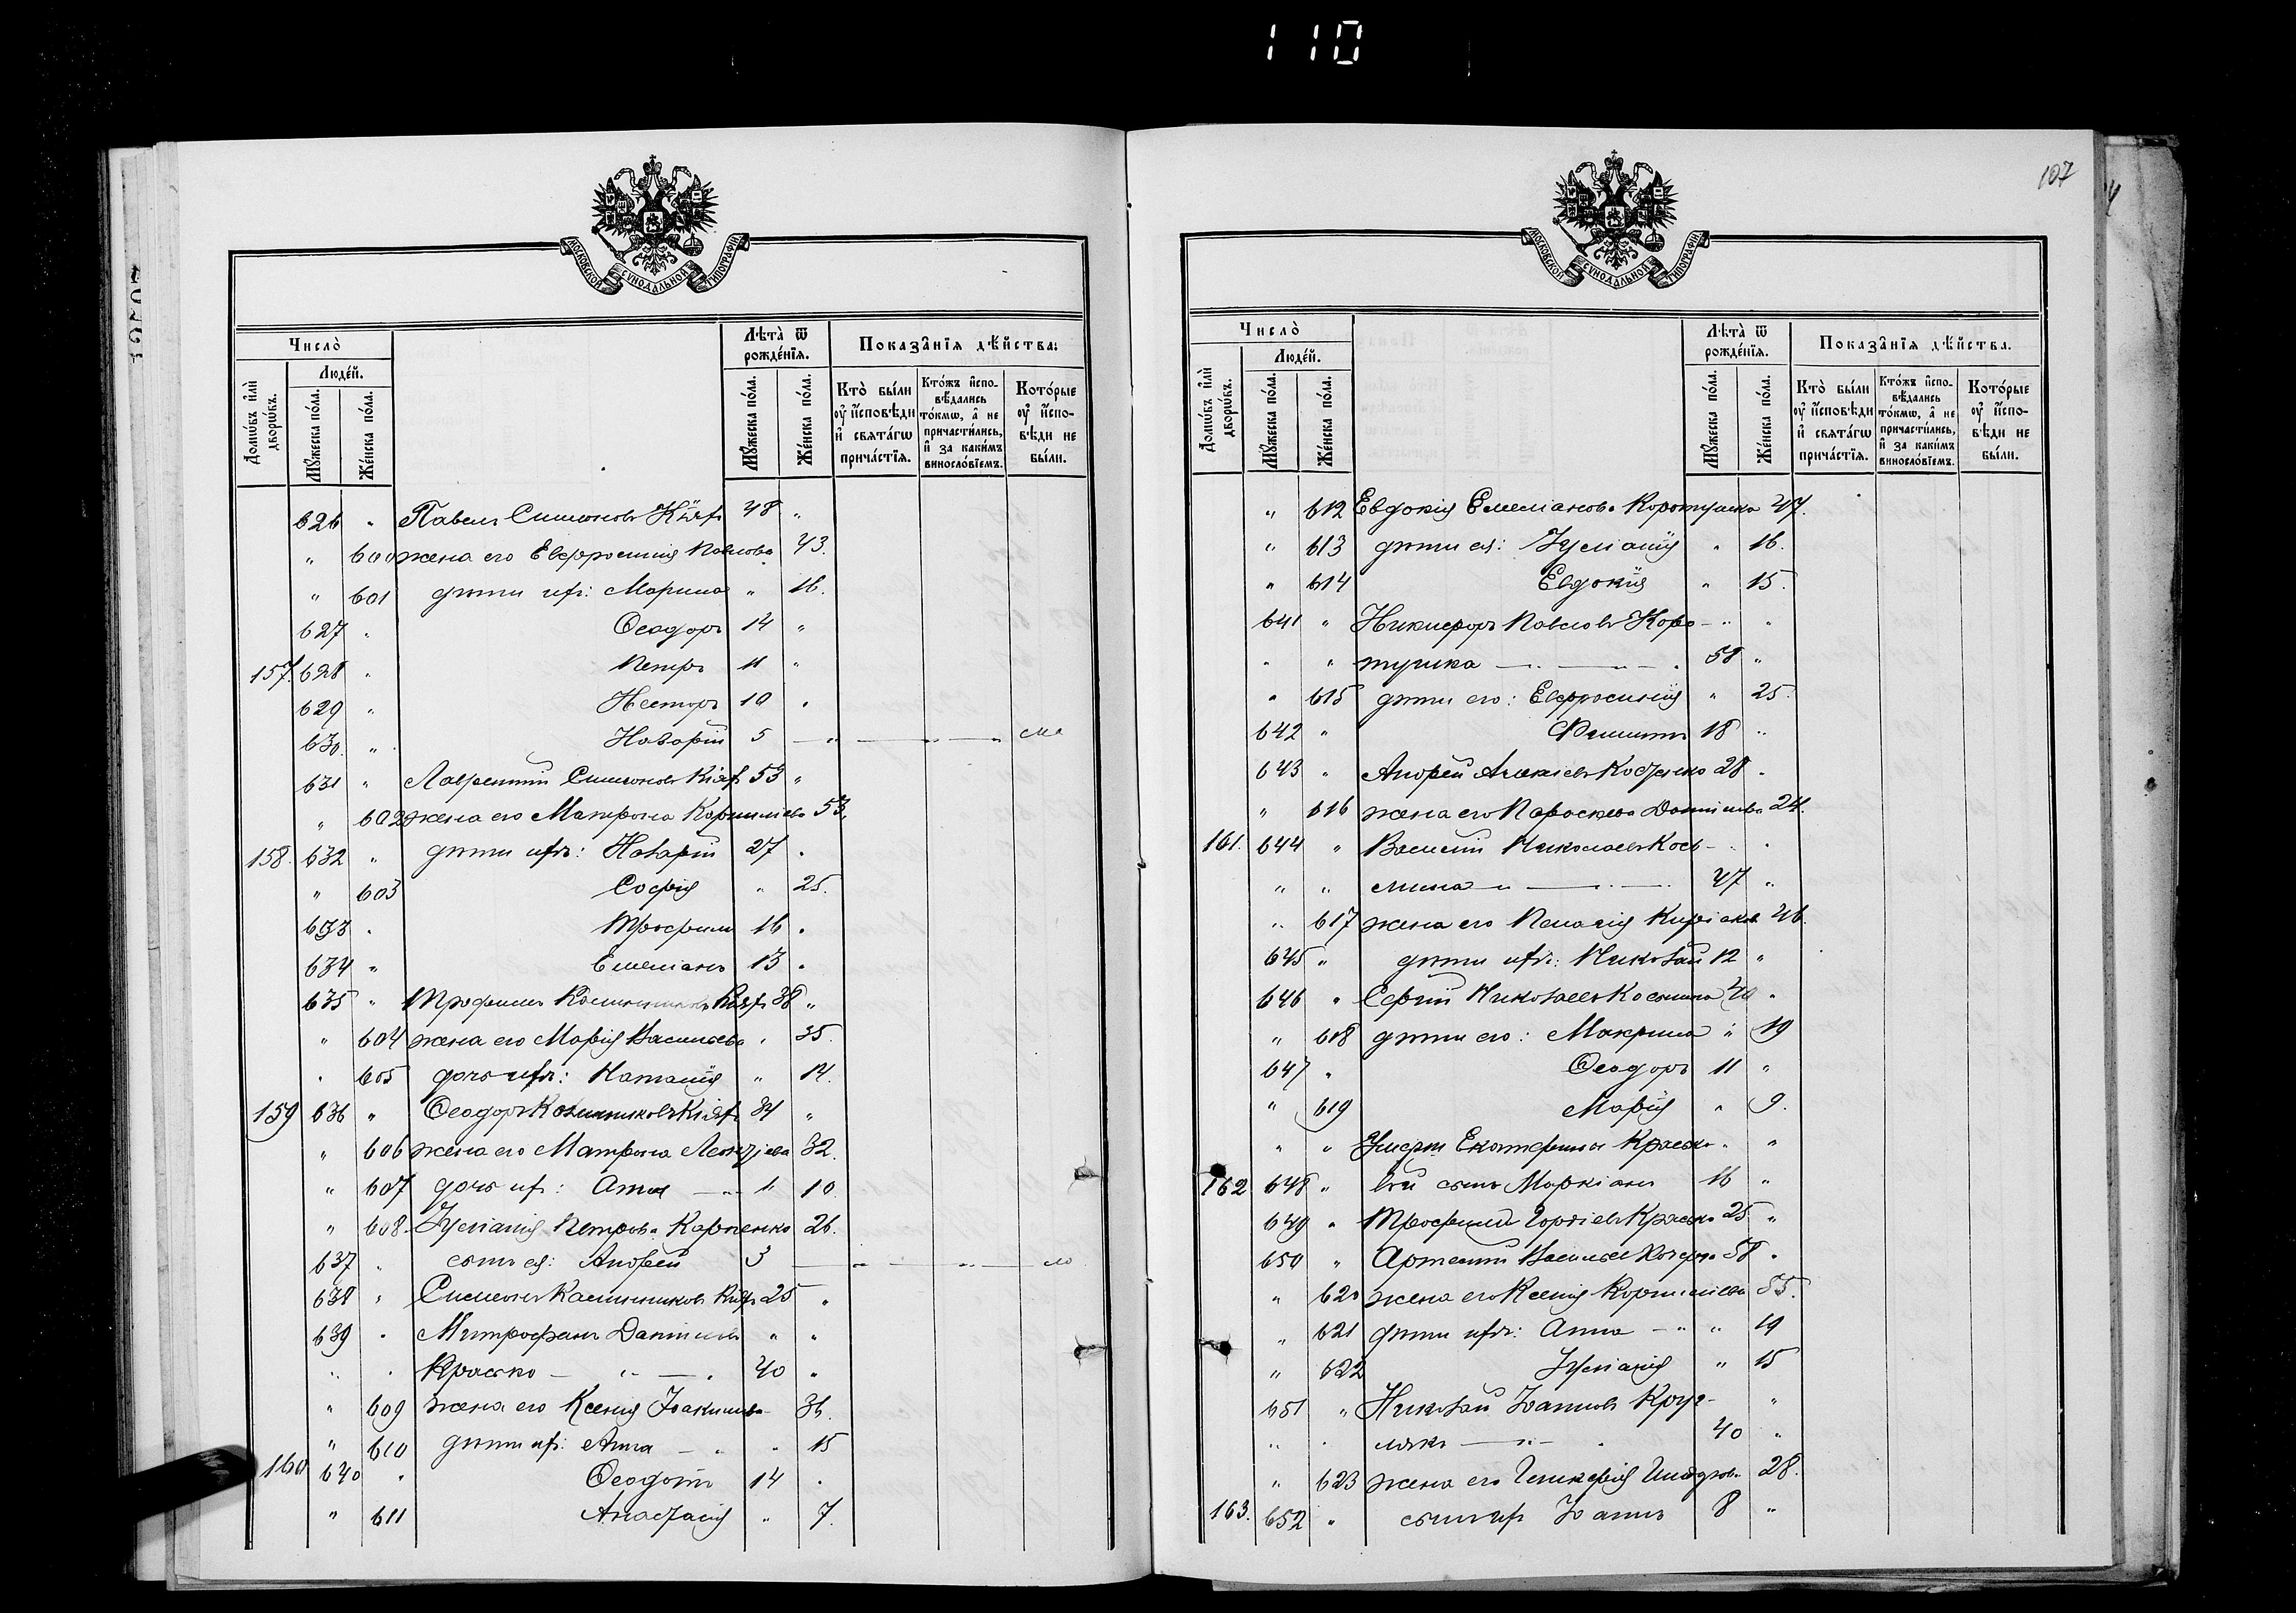 110
107
МОСКОВСКОЙ СѴНОДАЛЬНОЙ ТИПОГРАФІИ
Число̀
Людéй.
Домѡ́въ и҆лѝ дворѡ́въ.
Мꙋ́жеска по́ла.
Же́нска по́ла.
Лѣ́та ѿ рожде́нїѧ.
Мꙋ́жеска по́ла.
Же́нска по́ла.
Показа̑нїѧ дѣ́йства:
Кто̀ бы́ли оу҆ и҆сповѣ́ди и҆ свѧта́гѡ прича́стїѧ.
Кто́жъ и҆сповѣ́дались то́кмѡ, а҆ не причасти́лись, и҆ за каки́мъ винослó­вїемъ.
Кото́рые оу҆ и҆сповѣ́ди не бы́ли.
626 " Павелъ Симоновъ Кіяҍ 48 "
" 600 жена его Евфросинія Павлова 43.
" 601 дѣти ихъ: Марина " 16.
627 " Ѳеодоръ 14 "
157. 628 " Петръ 11 "
629 " Несторъ 10 "
630. " Назарій 5 — " — " — " мл
631 " Лаврентій Симоновъ 53 "
" 602 жена его Матрона Корниліева 53.
158. 632 " дѣти ихъ: Назарій 27 "
" 603 Софія " 25.
633 " Трофимъ 16 "
634 " Емеліанъ 13 "
635 " Трофимъ 38 "
" 604 жена его Марія Васильева " 35.
" 605 дочь ихъ: Наталія " 14.
159 636 " Ѳеодоръ 34 "
" 606 жена его Матрона 32.
" 607 дочь ихъ: Анна — " 10
" 608. Іуліанія Петрова Карпенко 26.
637 " сынъ ея: Андрей 3 — " — " —
638 " Симеонъ 25 "
639 " Митрофанъ Даніиловъ " "
" " Красько — " — " 40 "
" 609 жена его Ксенія Іоакимова 36.
" 610 дѣти ихъ: Анна — " " 15
160 640 " Ѳеодотъ 14 "
" 611 Анастасія " 7.
Число̀
Людéй.
Домѡ́въ и҆лѝ дворѡ́въ.
Мꙋ́жеска по́ла.
Же́нска по́ла.
Лѣ́та ѿ рожде́нїѧ.
Мꙋ́жеска по́ла.
Же́нска по́ла.
Показа̑нїѧ дѣ́йства.
Кто̀ бы́ли оу҆ и҆сповѣ́ди и҆ свѧта́гѡ прича́стїѧ.
Кто́жъ и҆сповѣ́дались то́кмѡ, а҆ не причасти́лись, и҆ за каки́мъ винослó­вїемъ.
Кото́рые оу҆ и҆сповѣ́ди не бы́ли.
" 612 Евдокія Емеліанова Коротушка 47.
" 613 дѣти ея: Іуліанія " 16.
" 614 Евдокія " 15.
641 " Никифоръ Павловъ Коро- " "
" " тушка — " — " — " 58 "
" 615 дѣти его: Евфросинія " 25.
642 " Филиппъ 18 "
643 " Андрей 28 "
" 616 жена его Параскева Даніилова 24.
161. 644 " Василій Николаевъ Кось- "
" " мина — " — " 47 "
" 617 жена его Пелагія 46.
645 " дѣти ихъ: Николай 12 "
646 " Сергій Николаевъ Косьмина 40 "
" 618 дѣти его: Макрина " 19
647 " Ѳеодоръ 11 "
" 619 Марія " 9.
" " Екатерины Красько- " "
162 648 " вой сынъ Маркіанъ 16 "
649 " Трофимъ Гордіевъ Красько 25 "
650 " Артемій 58 "
" 620 жена его Ксенія Корниліева 55.
" 621 дѣти ихъ: Анна — " " 19
" 622 Іуліанія " 15
651 " Николай Іоанновъ Круг- "
" " лякъ — " — " 40 "
" 623 жена его Гликерія 28.
163. 652 " сынъ ихъ Іоаннъ 8 "